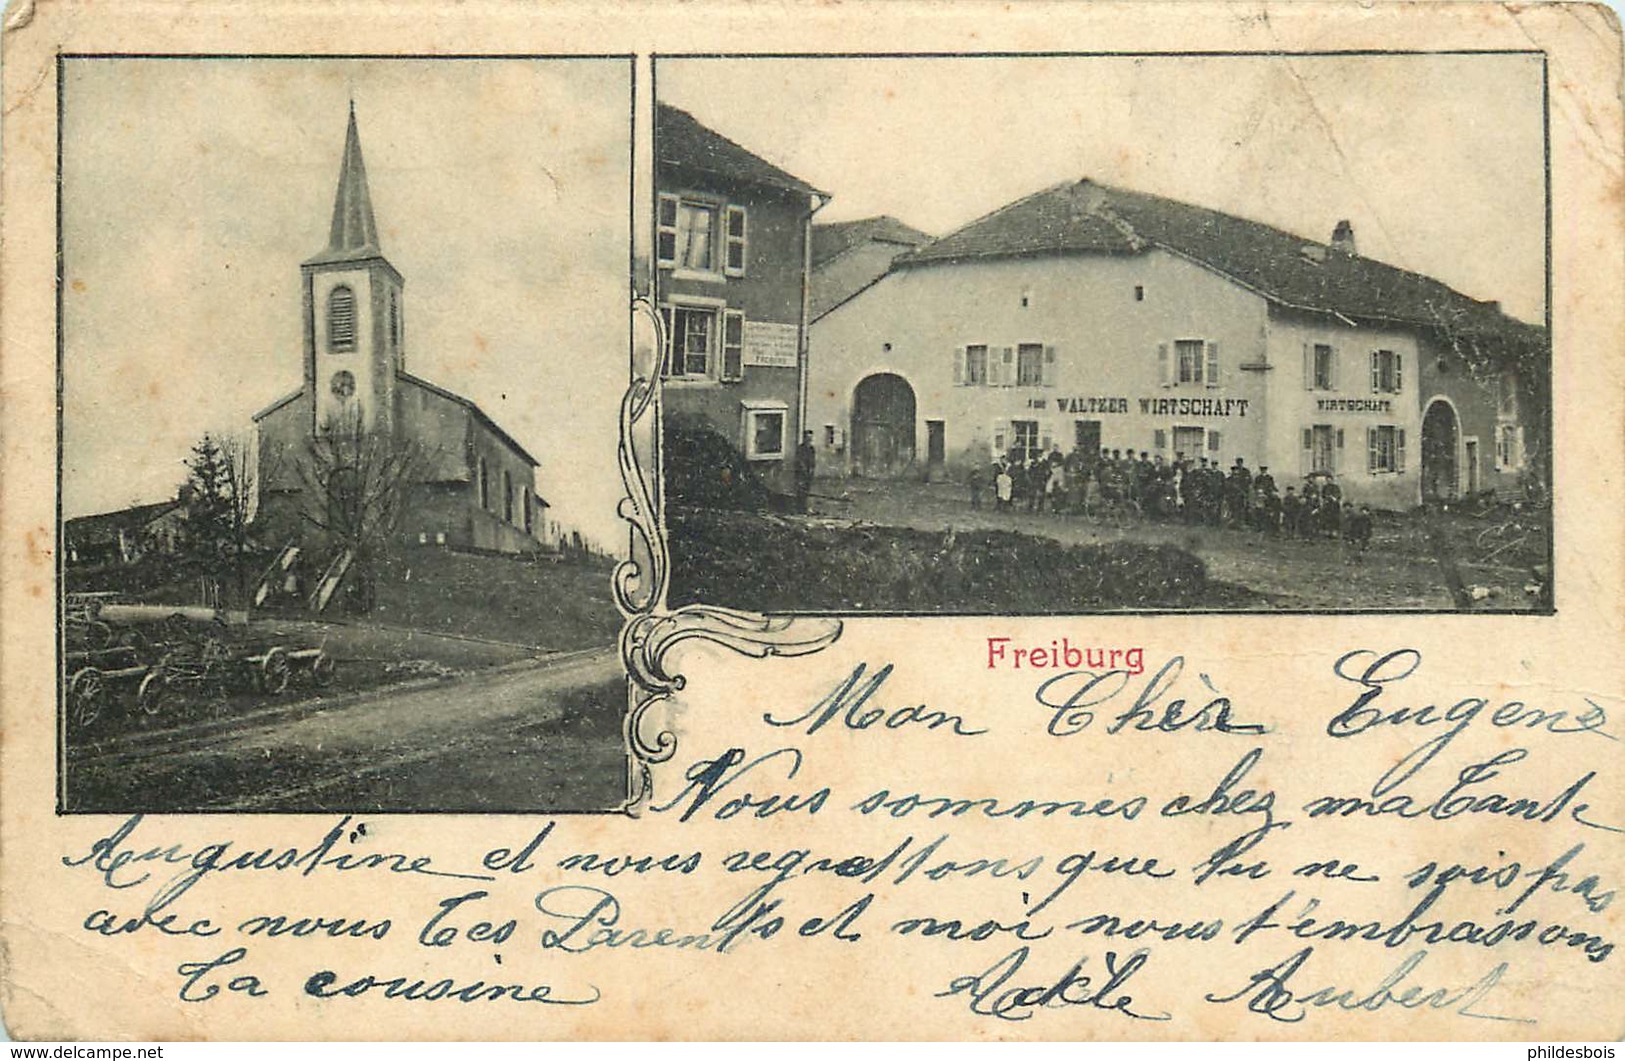 WALTZER WIRTSCHAFT
WIRTSCHAFT
Freiburg
Mon Chèr Eugène
Nous sommes chez ma Tante
Augustine et nous regrettons que tu ne sois pas
avec nous Tes Parents et moi nous t'embrassons
Ta cousine Adèle Aubert
phildesbois